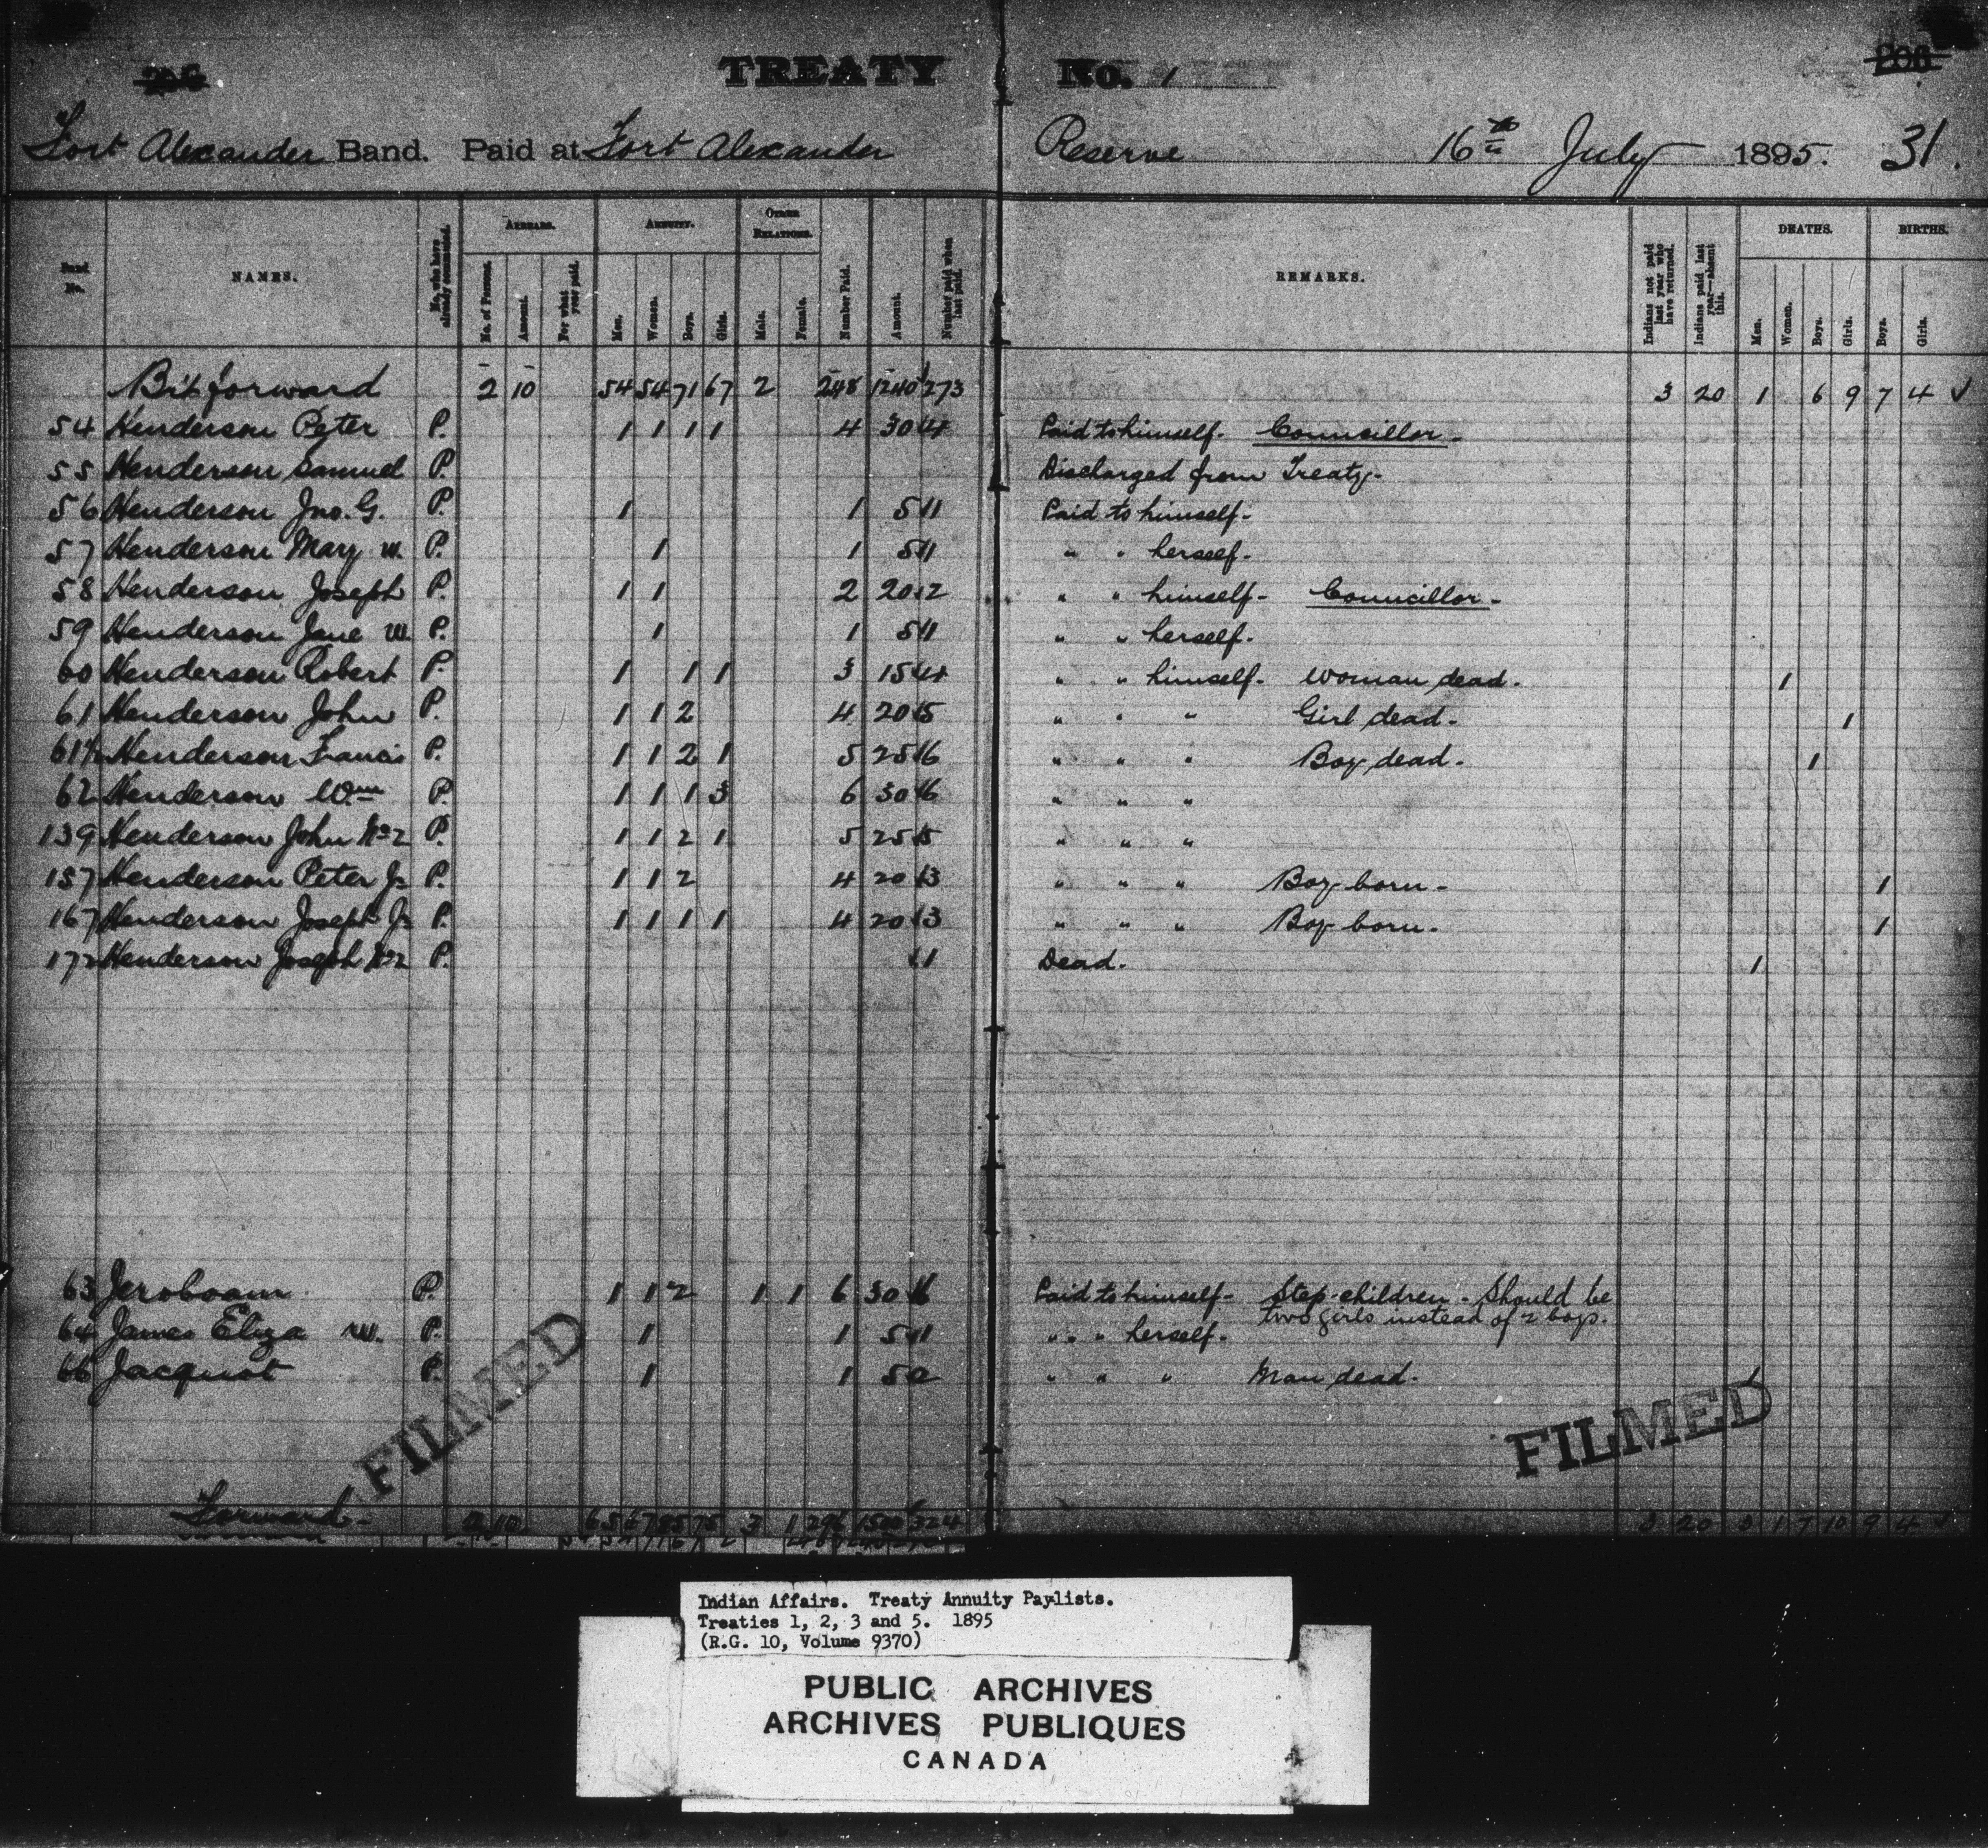 TREATY No. 1
Fort Alexander Band. Paid at Fort Alexander Reserve 16th July 1895. 31.
Band No. NAMES. No. who have already commuted. ARREARS. No. of Persons. Amount. For what year paid. ANNUITY. Men. Women. Boys. Girls. OTHER RELATIONS. Male. Female. Number Paid. Amount. Number paid when last paid. REMARKS. Indians not paid last year who have returned. Indians paid last year—absent this. DEATHS. Men. Women. Boys. Girls. BIRTHS. Boys. Girls.
Bt forward 2 10 54 54 71 67 2 248 1240 273 3 20 1 6 9 7 4 ✓
54 Henderson Peter P. 1 1 1 1 4 30 4 Paid to himself. Councillor.
55 Henderson Samuel P. Discharged from Treaty.
56 Henderson Jno. G. P. 1 1 5 1 Paid to himself.
57 Henderson Mary W. P. 1 1 5 1 " " herself.
58 Henderson Joseph P. 1 1 2 20 2 " " himself - Councillor.
59 Henderson Jane W. P. 1 1 5 1 " " herself.
60 Henderson Robert P. 1 1 1 3 15 4 " " himself - Woman dead. 1
61 Henderson John P. 1 1 2 4 20 5 " " " Girl dead. 1
61½ Henderson Francis P. 1 1 2 1 5 25 6 " " " Boy dead. 1
62 Henderson Wm P. 1 1 1 3 6 30 6 " " "
139 Henderson John No 2 P. 1 1 2 1 5 25 5 " " "
157 Henderson Peter Jr P. 1 1 2 4 20 3 " " " Boy born. 1
167 Henderson Joseph Jr P. 1 1 1 1 4 20 3 " " " Boy born. 1
172 Henderson Joseph No 2 P. 1 Dead. 1
63 Jeroboam P. 1 1 2 1 1 6 30 6 Paid to himself - Step-children. Should be
two girls instead of 2 boys.
64 James Eliza W. P. 1 1 5 1 " " herself.
66 Jacquot P. 1 1 5 2 " " " Man dead. 1
FILMED
FILMED
Forward. 2 10 65 67 85 75 3 1 296 1500 324 3 20 3 1 7 10 9 4 ✓
Indian Affairs. Treaty Annuity Paylists.
Treaties 1, 2, 3 and 5. 1895
(R.G. 10, Volume 9370)
PUBLIC ARCHIVES
ARCHIVES PUBLIQUES
CANADA